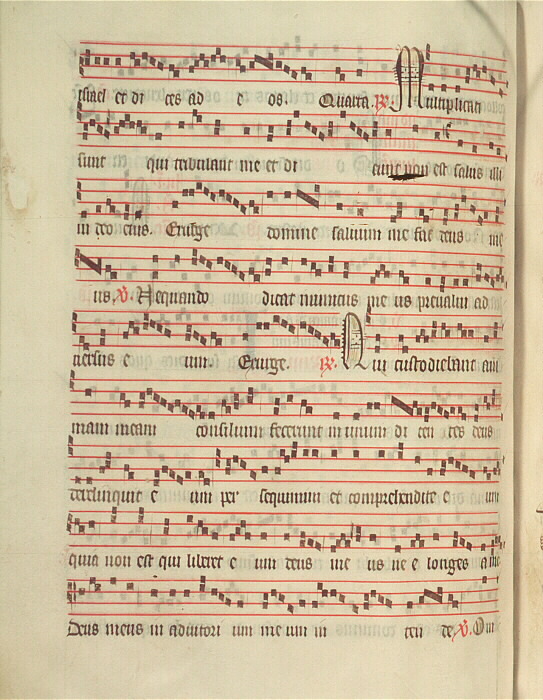 israel et di ces ad e os. Quarta. ℟. Multiplicati
sunt qui tribulant me et di cunt non est salus illi
in deo eius. Exurge domine salvum me fac deus me
us ℣. Nequando dicat inimicus me us prevalui ad
versus e um. Exurge. ℟. Qui custodiebant ani
mam meam consilium fecerunt in unum di cen tes deus
dereliquit e um per sequimini et comprehendite e um
quia non est qui liberet e um deus me us ne e longes a me
Deus meus in adiutori um me um in ten de ℣. Om